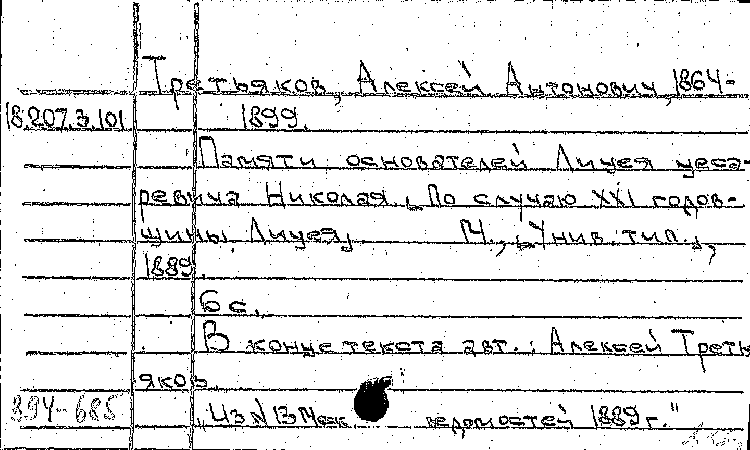 Третьяков, Алексей Антонович, 1864-
18.207.3.101 1899.
Памяти основателей Лицея цеса-
ревича Николая. По случаю XXI годов-
щины Лицея. М., Унив. тип.,
1889.
6 с.
В конце текста авт.: Алексей Треть
яков.
894-685
"Из N 13 Мск. ведомостей 1889 г."